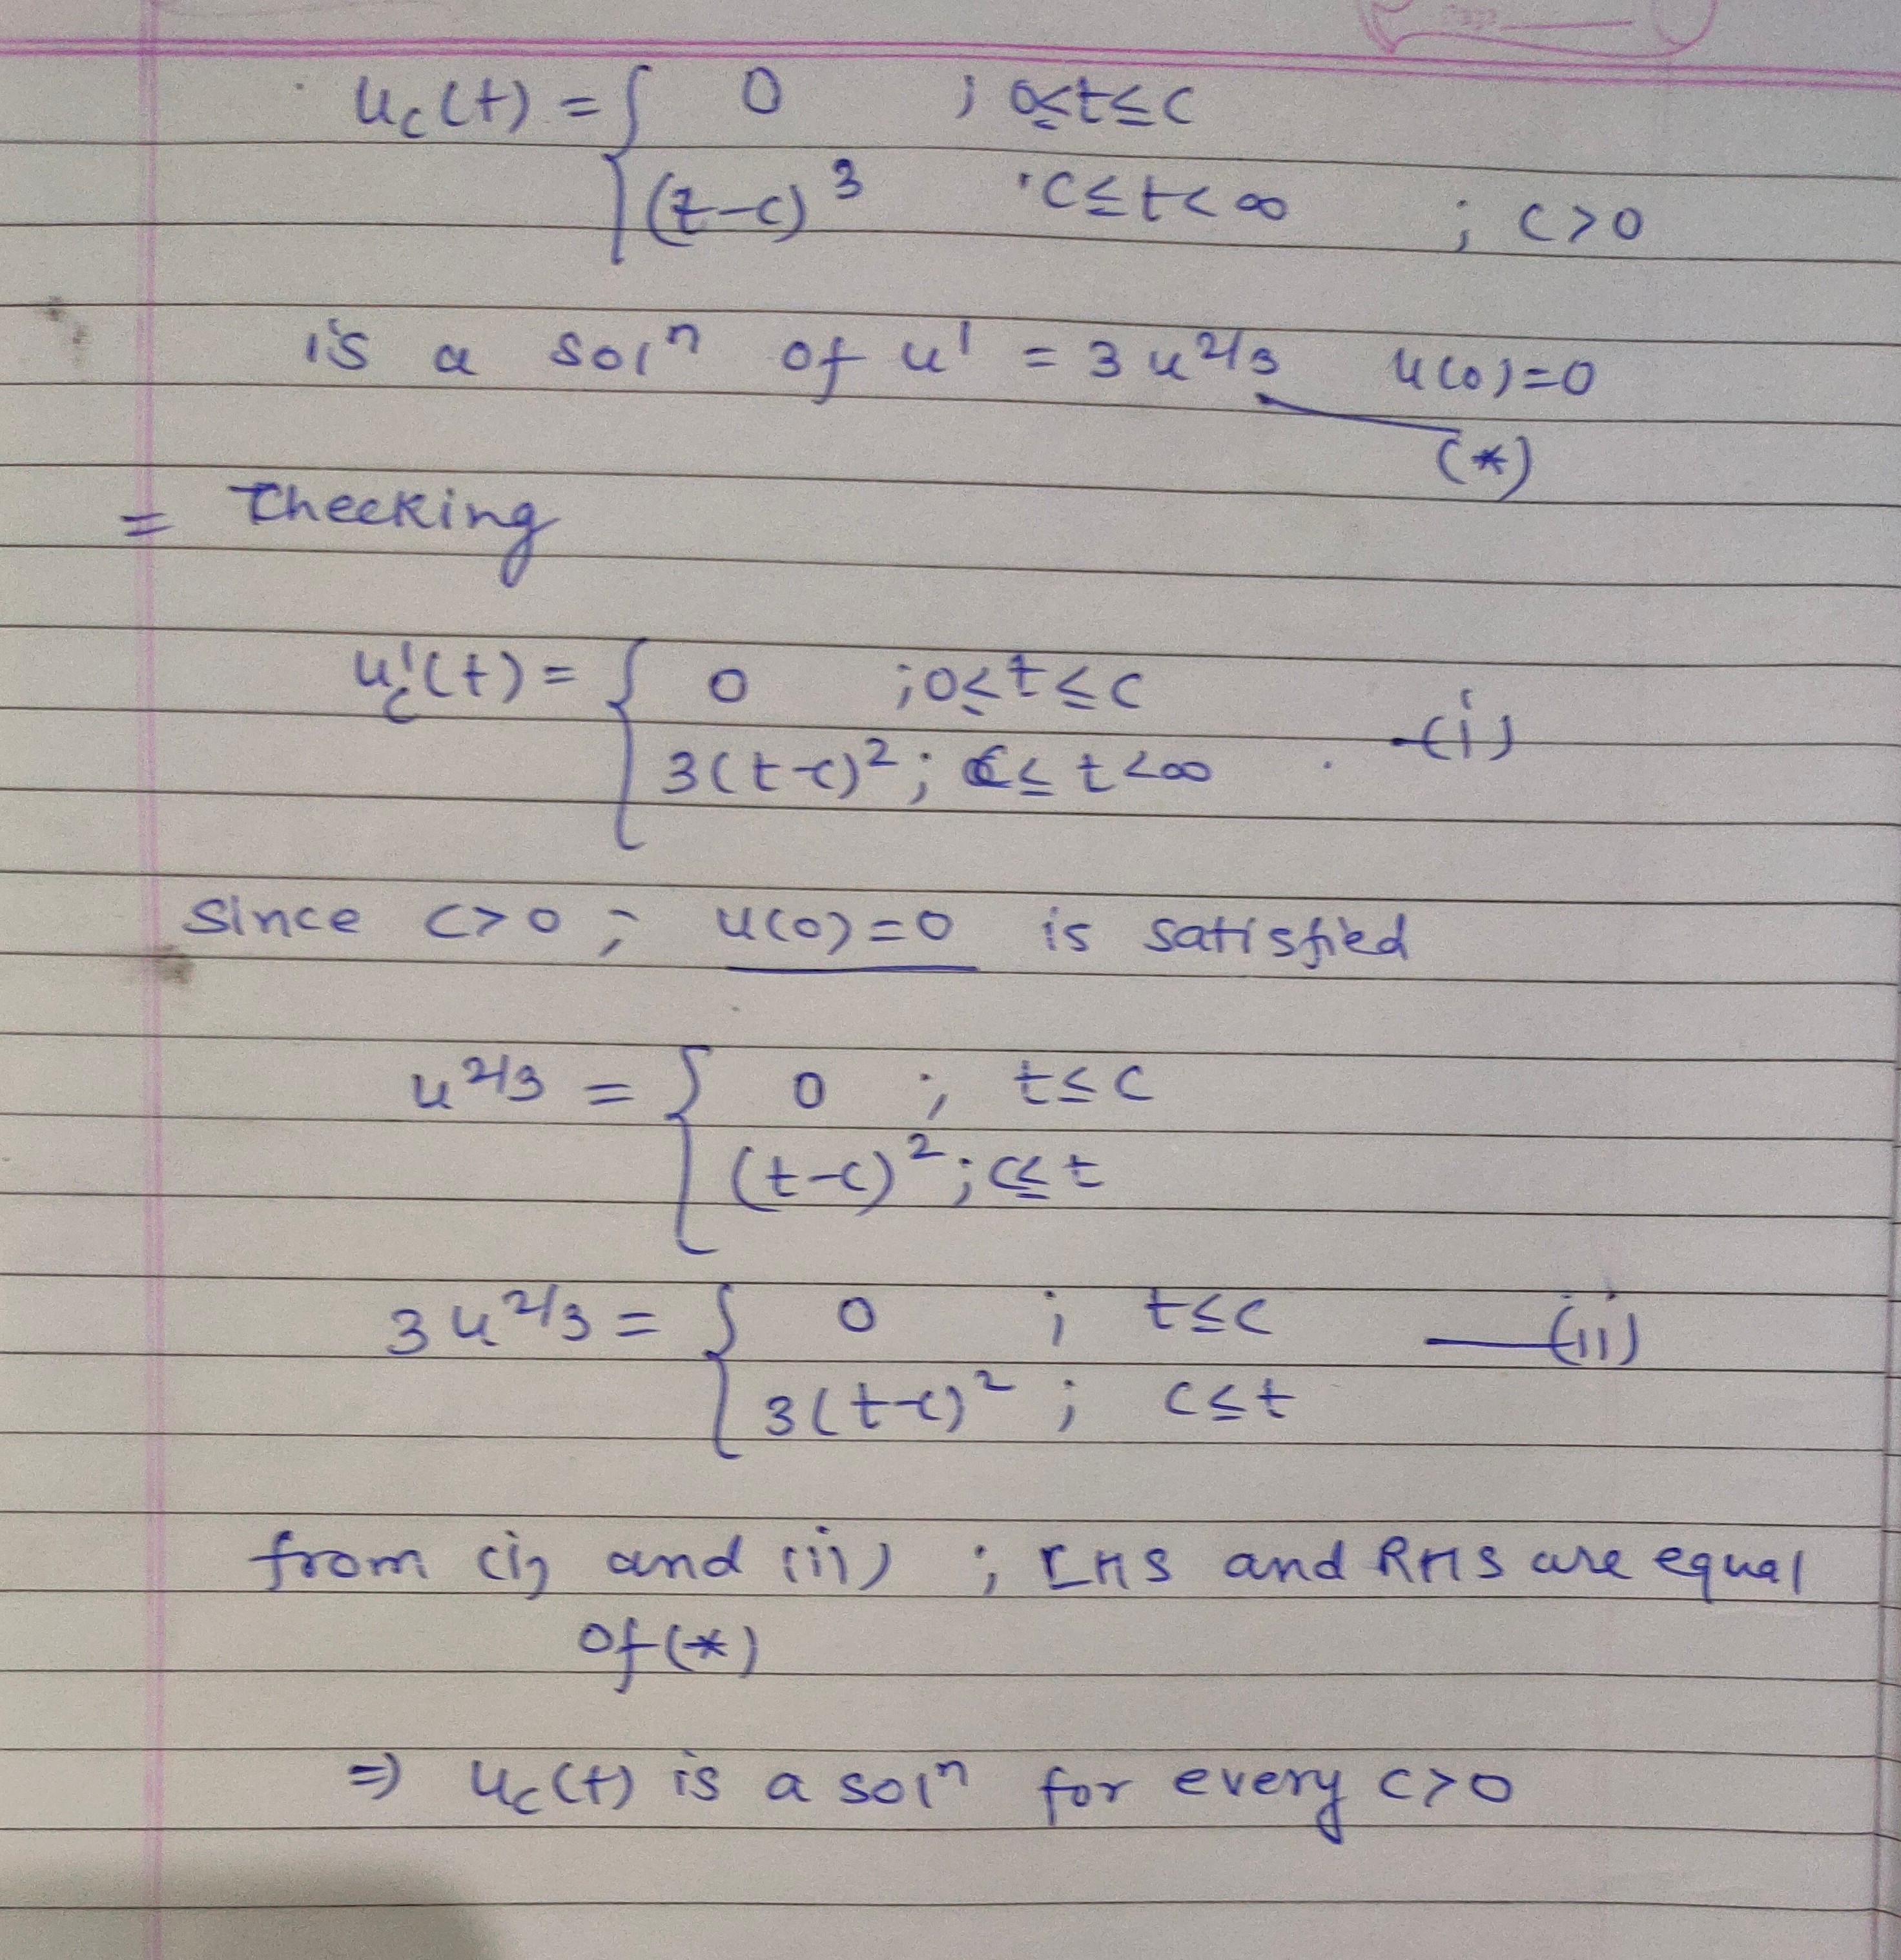 u_c(t) = { 0 ; 0≤t≤c
(t-c)³ ; c≤t<∞ ; c>0
is a solⁿ of u' = 3u^2/3 u(0)=0
(*)
= Checking
u'_c(t) = { 0 ; 0≤t≤c
3(t-c)² ; c≤t<∞ —(i)
Since c>0 ; u(0)=0 is satisfied
u^2/3 = { 0 ; t≤c
(t-c)² ; c≤t
3u^2/3 = { 0 ; t≤c —(ii)
3(t-c)² ; c≤t
from (i) and (ii) ; LHS and RHS are equal
of (*)
⇒ u_c(t) is a solⁿ for every c>0